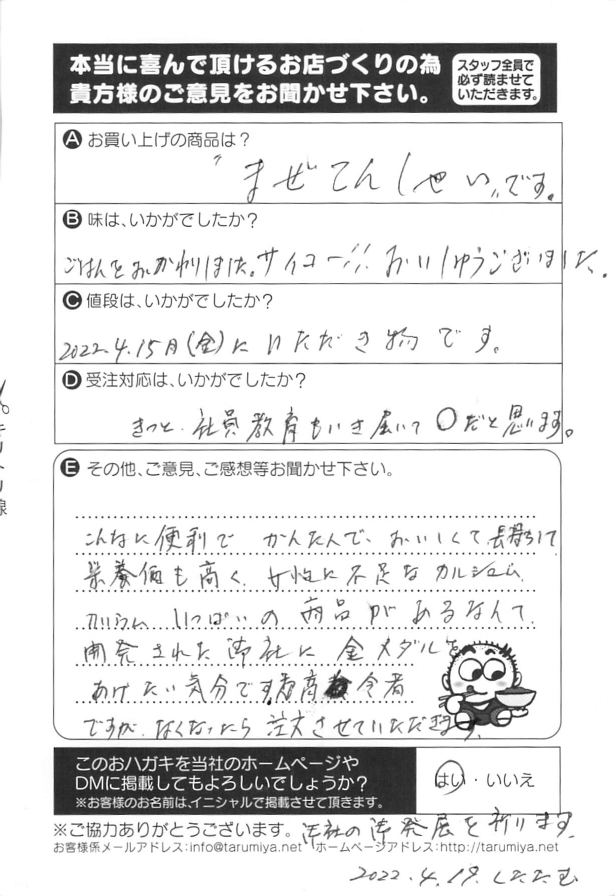 本当に喜んで頂けるお店づくりの為
貴方様のご意見をお聞かせ下さい。
スタッフ全員で
必ず読ませて
いただきます。
A お買い上げの商品は?
"まぜてんしせい"です。
B 味は、いかがでしたか?
ごはんをおかわりしました。サイコー!! おいしゅうございました。
C 値段は、いかがでしたか?
2022.4.15月(金)にいただき物です。
D 受注対応は、いかがでしたか?
きっと、社員教育もいき届いて〇だと思います。
E その他、ご意見、ご感想等お聞かせ下さい。
こんなに便利で かんたんで、おいしくて、長持ちして
栄養価も高く、女性に不足なカルシューム
カルシウム いっぱいの商品があるなんて、
開発された御社に金メダルを
あげたい気分です。高令者
ですが、なくなったら注文させていただきます。
キリトリ線
このおハガキを当社のホームページや
DMに掲載してもよろしいでしょうか?
※お客様のお名前は、イニシャルで掲載させて頂きます。
はい・いいえ
※ご協力ありがとうございます。 御社の御発展を祈ります。
お客様係メールアドレス:info@tarumiya.net ホームページアドレス:http://tarumiya.net
2022.4.19. したたむ